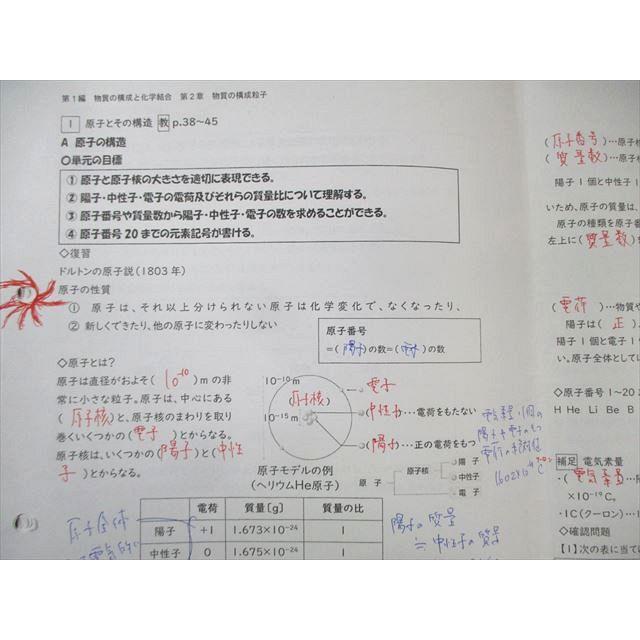 第1編 物質の構成と化学結合 第2章 物質の構成粒子
1 原子とその構造 教 p.38～45
A 原子の構造
〇単元の目標
① 原子と原子核の大きさを適切に表現できる。
② 陽子・中性子・電子の電荷及びそれらの質量比について理解する。
③ 原子番号や質量数から陽子・中性子・電子の数を求めることができる。
④ 原子番号20までの元素記号が書ける。
◇復習
ドルトンの原子説(1803年)
原子の性質
① 原子は、それ以上分けられない原子は化学変化で、なくなったり、
② 新しくできたり、他の原子に変わったりしない
原子番号
=(陽子)の数=(電子)の数
◇原子とは?
原子は直径がおよそ(10⁻¹⁰)mの非
常に小さな粒子。原子は、中心にある
(原子核)と、原子核のまわりを取り
巻くいくつかの(電子)とからなる。
原子核は、いくつかの(陽子)と(中性
子)とからなる。
10⁻¹⁰m
(原子核)
10⁻¹⁵m
電子
(中性子)…電荷をもたない
(陽子)…正の電荷をもつ
原子モデルの例
(ヘリウムHe原子)
原子
原子核
陽子
中性子
電子
電荷 質量[g] 質量の比
陽子 +1 1.673×10⁻²⁴ 1
中性子 0 1.675×10⁻²⁴ 1
原子全体
電気的に
陽子の質量
≒中性子の質量
(原子番号)…原子核
(質量数)…原子核
陽子1個と中性子1
いため、原子の質量は、
原子の種類を原子番
左上に(質量数)を
(電荷)…物質や
陽子は(正)、
陽子1個と電子1
い。原子全体として
◇原子番号1～20
H He Li Be B
補足 電気素量
・(電気素量…陽
×10⁻¹⁹C。
・1C(クーロン)…1
◇確認問題
【1】次の表に当て